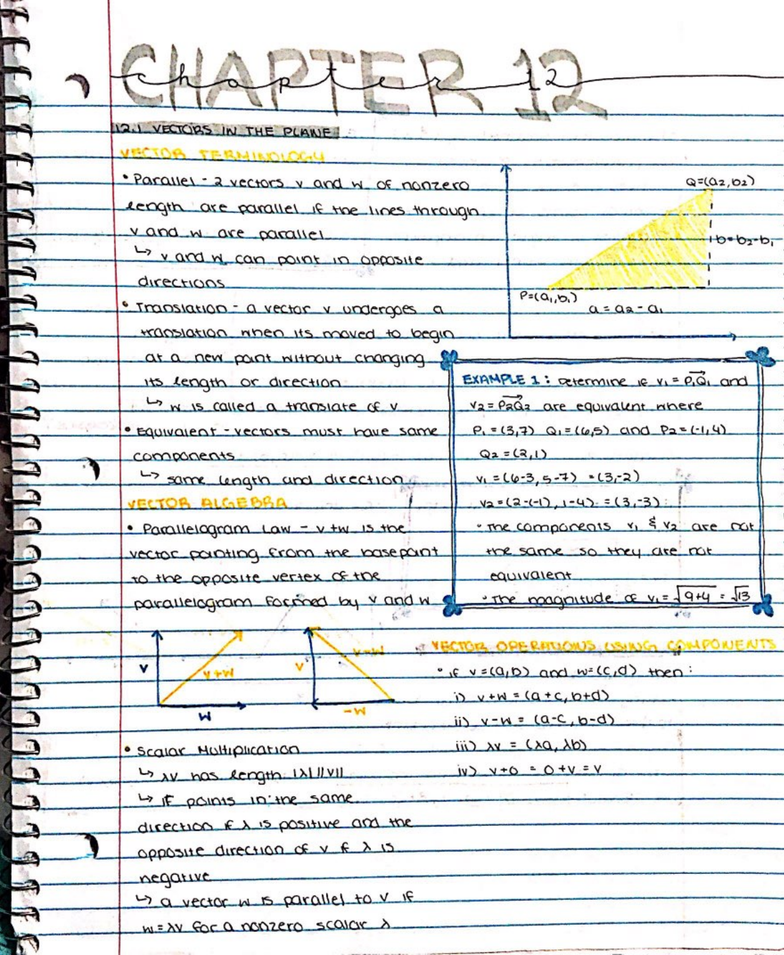 CHAPTER 12
chapter 12
12.1 VECTORS IN THE PLANE
VECTOR TERMINOLOGY
• Parallel - 2 vectors v and w of nonzero
length are parallel if the lines through
v and w are parallel
↳ v and w can point in opposite
directions
• Translation - a vector v undergoes a
translation when its moved to begin
at a new point without changing
its length or direction
↳ w is called a translate of v
• Equivalent - vectors must have same
components
↳ same length and direction
VECTOR ALGEBRA
• Parallelogram Law - v+w is the
vector pointing from the basepoint
to the opposite vertex of the
parallelogram formed by v and w
v
v+w
w
v
v-w
-w
• Scalar Multiplication
↳ λv has length |λ| ||v||
↳ if points in the same
direction if λ is positive and the
opposite direction of v if λ is
negative
↳ a vector w is parallel to v if
w = λv for a nonzero scalar λ
Q=(a₂,b₂)
b=b₂-b₁
P=(a₁,b₁)
a = a₂ - a₁
EXAMPLE 1: Determine if v₁ = P₁Q₁ and
v₂ = P₂Q₂ are equivalent where
P₁ = (3,7) Q₁ = (6,5) and P₂ = (-1,4)
Q₂ = (2,1)
v₁ = (6-3, 5-7) = (3,-2)
v₂ = (2-(-1), 1-4) = (3,-3)
• The components v₁ & v₂ are not
the same so they are not
equivalent
• The magnitude of v₁ = √9+4 = √13
VECTOR OPERATIONS USING COMPONENTS
• if v=(a,b) and w=(c,d) then:
i) v+w = (a+c, b+d)
ii) v-w = (a-c, b-d)
iii) λv = (λa, λb)
iv) v+0 = 0+v = v